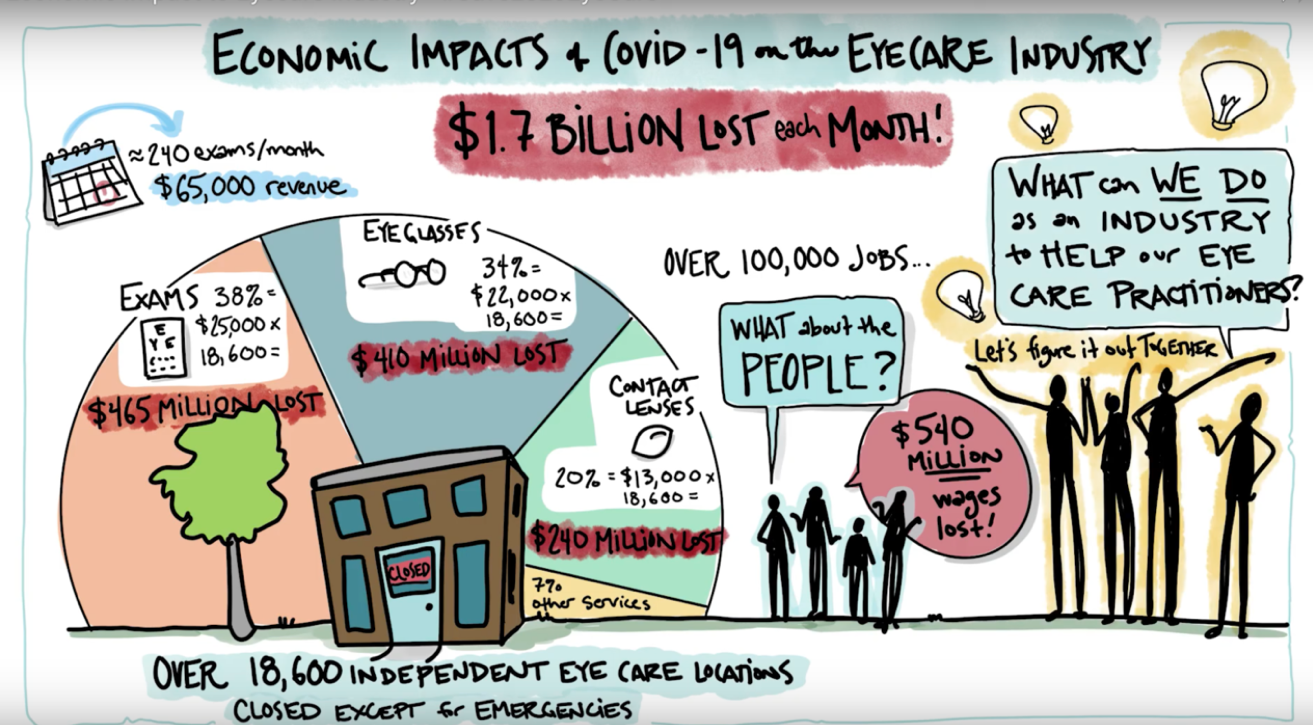 ECONOMIC IMPACTS of COVID-19 on the EYECARE INDUSTRY
$1.7 BILLION LOST each MONTH!
≈240 exams/month
$65,000 revenue
EXAMS 38% =
$25,000 x
18,600 =
$465 MILLION LOST
E
Y E
EYEGLASSES
34% =
$22,000 x
18,600 =
$410 MILLION LOST
CONTACT
LENSES
20% = $13,000 x
18,600 =
$240 MILLION LOST
7%
other services
CLOSED
OVER 18,600 INDEPENDENT EYE CARE LOCATIONS
CLOSED EXCEPT for EMERGENCIES
OVER 100,000 JOBS...
WHAT about the
PEOPLE?
$540
MILLION
wages
lost!
WHAT can WE DO
as an INDUSTRY
to HELP our EYE
CARE PRACTITIONERS?
Let's figure it out TOGETHER